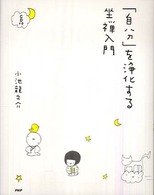 「自分」を浄化する
坐禅入門
小池龍之介
PHP